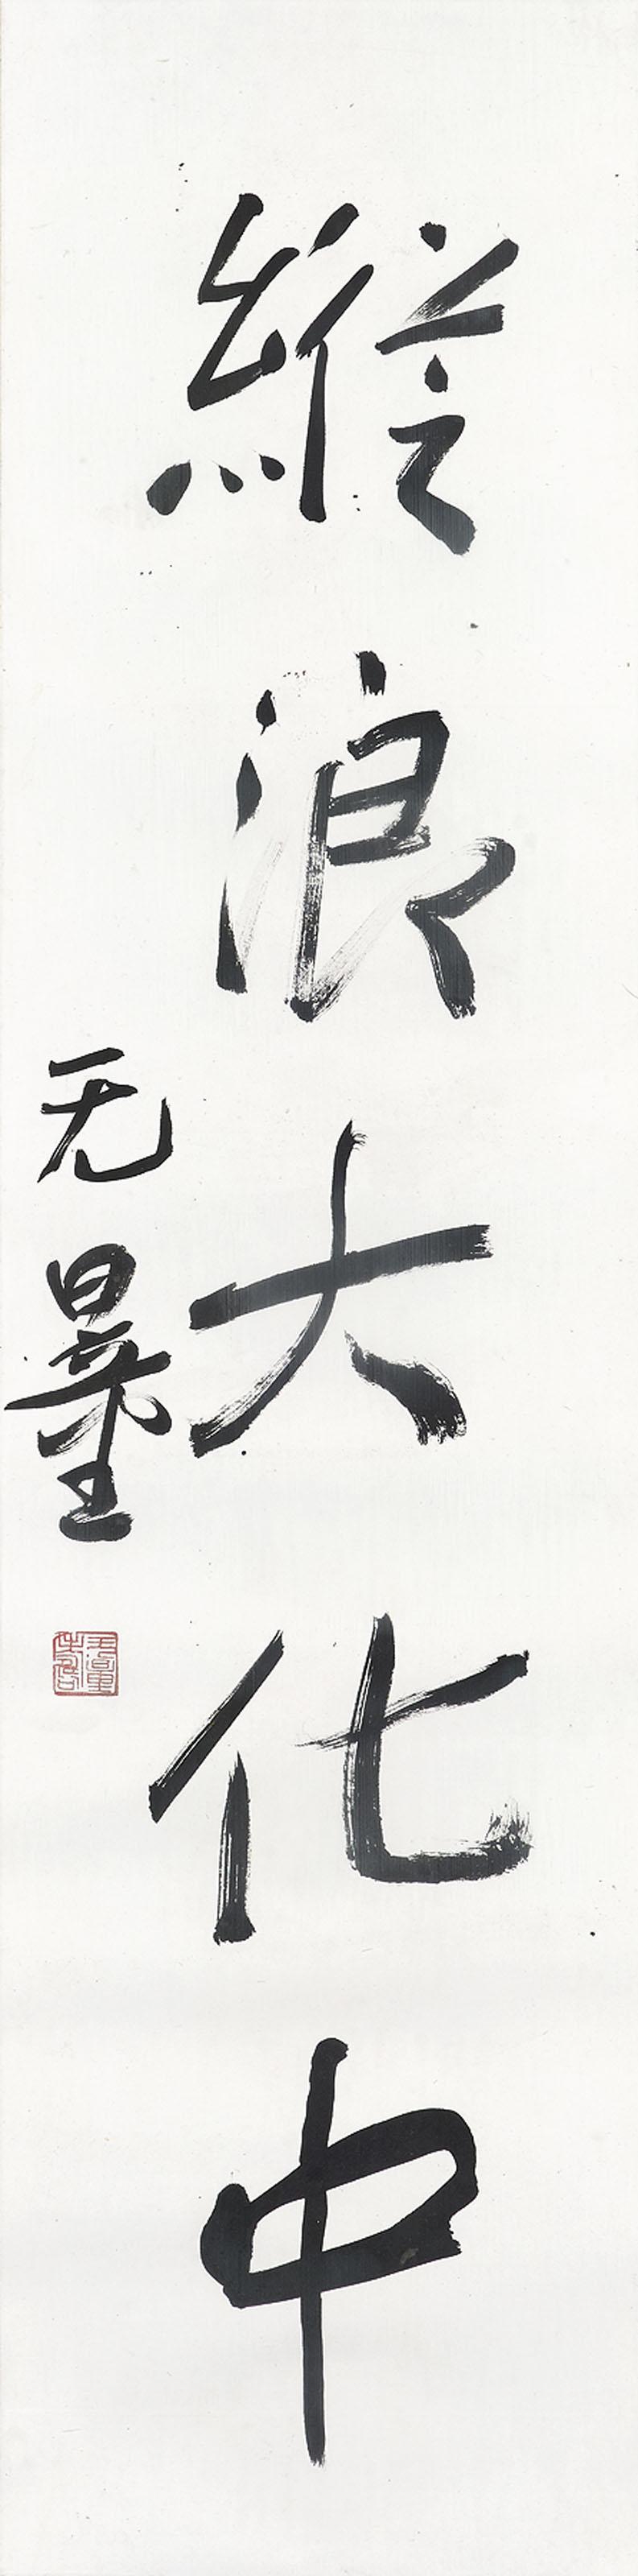 縱浪大化中
无量